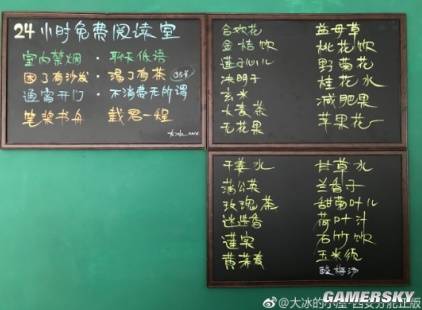 24小时免费阅读室
室内禁烟·聊天低语
困了有沙发·渴了有茶
通宵开门·不消费无所谓
笔桨书舟 载君一程
合欢花 益母草
金桔饮 桃花饮
莲子心儿 野菊花
决明子 桂花水
玄米 减肥果
大麦茶 苹果花
无花果
干姜水 甘草水
蒲公英 兰香子
玫瑰茶 甜菊叶儿
迷迭香 荷叶汁
莲实 石竹饮
玉米须
酸梅汤
@大冰的小屋-西安分舵正版
GAMERSKY